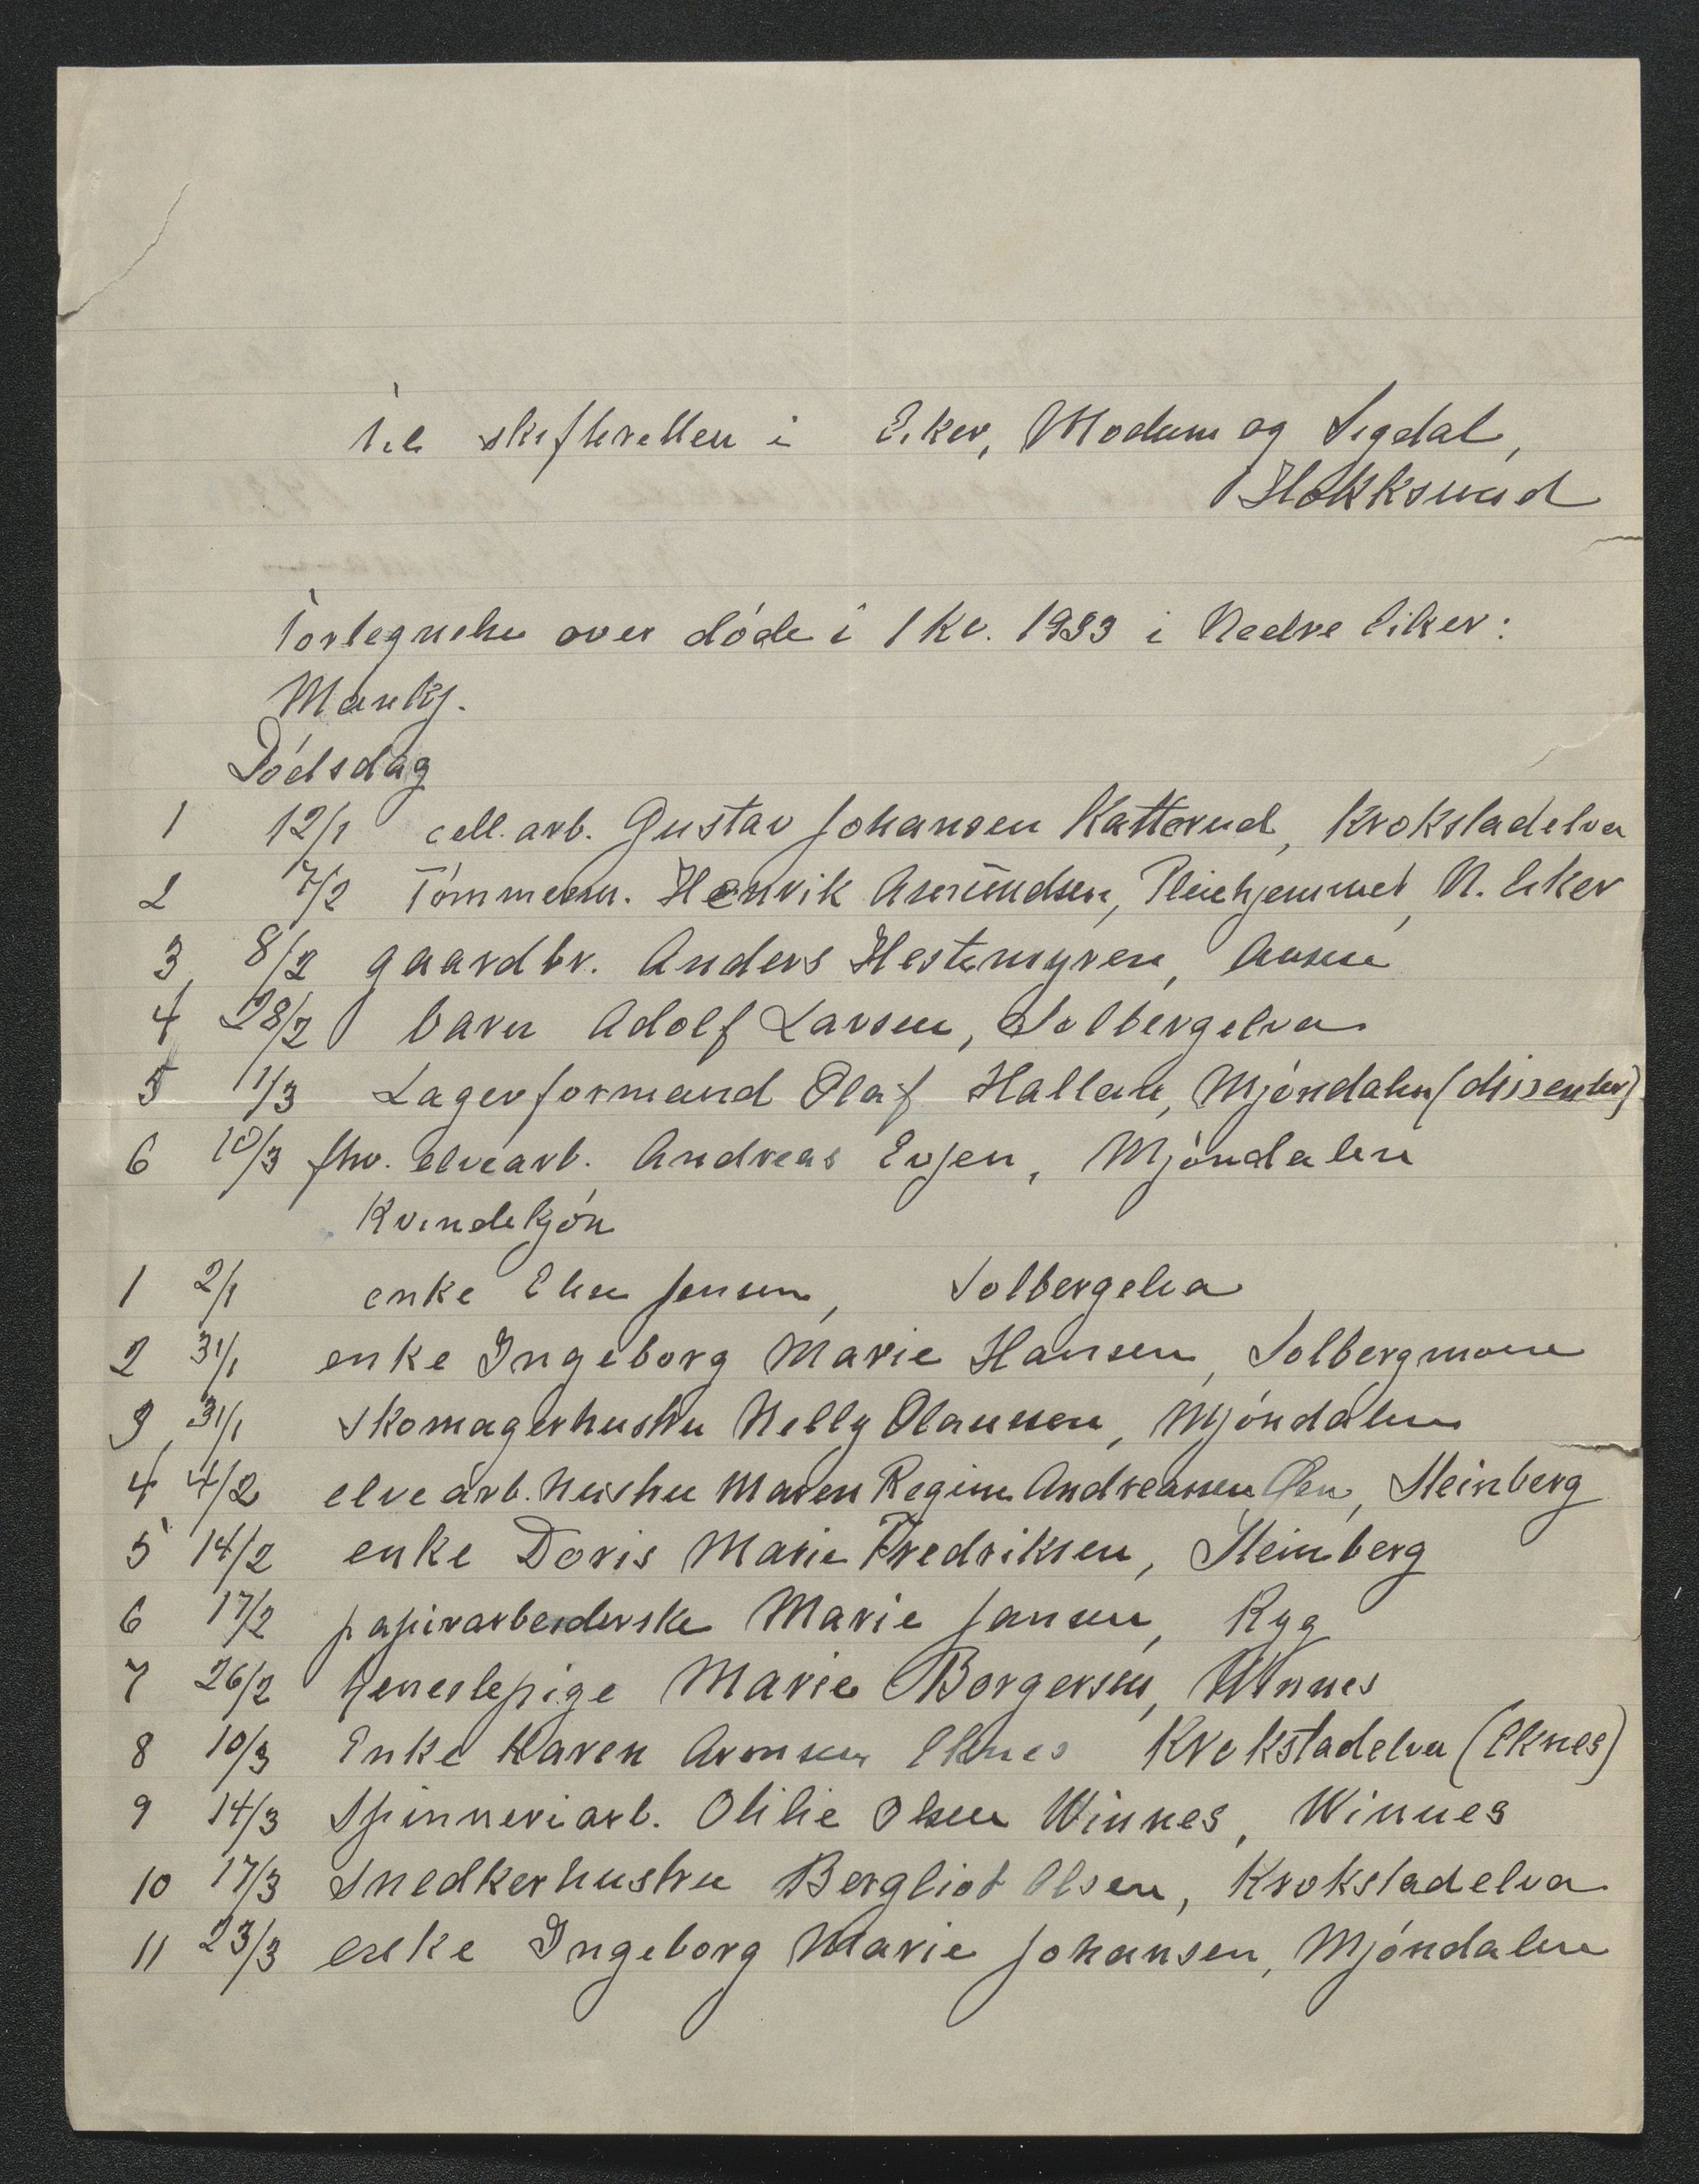 Til skifteretten i Eiker, Modum og Sigdal,
Hokksund
Fortegnelse over døde i 1 kv. 1933 i Nedre Eiker:
Mankj.
Dódsdag
1 12/1 cell. arb. Gustav Johansen Katterud, Krokstadelva
2 7/2 Tómmerm. Henrik Amundsen, Pleiehjemmet, N. Eiker
3 8/2 gaardbr. Anders Hestemyren, Aasen
4 28/2 barn Adolf Larsen, Solbergelva
5 11/3 Lagerformand Olaf Hallan, Mjóndalen (dissenter)
6 10/3 fhv. elvearb. Andreas Evjen, Mjóndalen
Kvindekjón
1 2/1 enke Elise Jensen, Solbergelva
2 31/1 enke Ingeborg Marie Hansen, Solbergmoen
3 31/1 Skomagerhustru Nelly Olaussen, Mjóndalen
4 4/2 elvearb. hustru Maren Regine Andreassen, Steinberg
5 14/2 enke Doris Marie Fredriksen, Steinberg
6 17/2 papirarbeiderske Marie Jansen, Ryg
7 26/2 tjenestepige Marie Borgersen, Winnes
8 10/3 Enke Karen Aronsen Eknes Krokstadelva (Eknes)
9 14/3 Spinneriarb. Otilie Olsen Winnes, Winnes
10 17/3 Snedkerhustru Bergliot Olsen, Krokstadelva
11 23/3 enke Ingeborg Marie Johansen, Mjóndalen